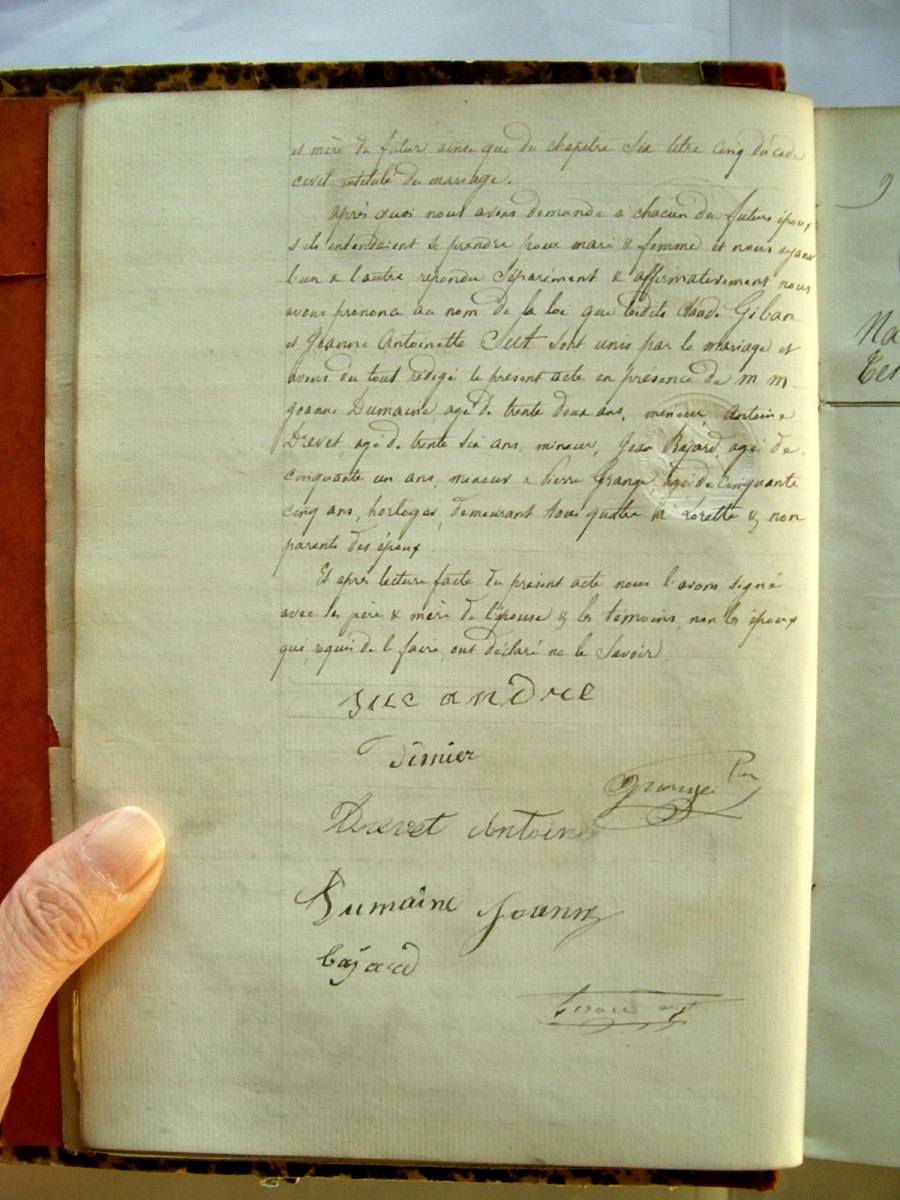 et mère du futur ainsi que du chapitre Six titre Cinq du code
civil intitulé du mariage.
après quoi nous avons demandé a chacun des futurs époux
s'ils entendaient se prendre pour mari & femme et nous ayant
l'un & l'autre repondu Séparément & affirmativement nous
avons prononcé au nom de la loi que lesdits Claude Giban
et Jeanne Antoinette Sut sont unis par le mariage et
avons du tout rédigé le present acte en présence de m m.
Joanni Dumaine, agé de trente deux ans, mineur, Antoine
Drevet, agé de trente six ans, mineur, Jean Bajard, agé de
cinquante un ans, mineur & Pierre Grange, agé de Cinquante
cinq ans, horloger, demeurant tous quatre à Lorette & non
parents des époux.
Et après lecture faite du présent acte nous l'avons signé
avec les père & mère de l'épouse & les témoins, non les époux
qui, requis de le faire, ont déclaré ne le Savoir.
andré
Grange
Drevet Antoine
Dumaine Joanny
bajard